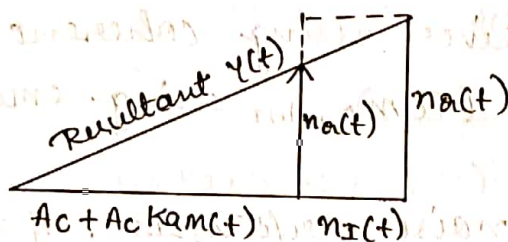 Resultant y(t)
nQ(t)
nQ(t)
Ac + Ac Kam(t)
nI(t)